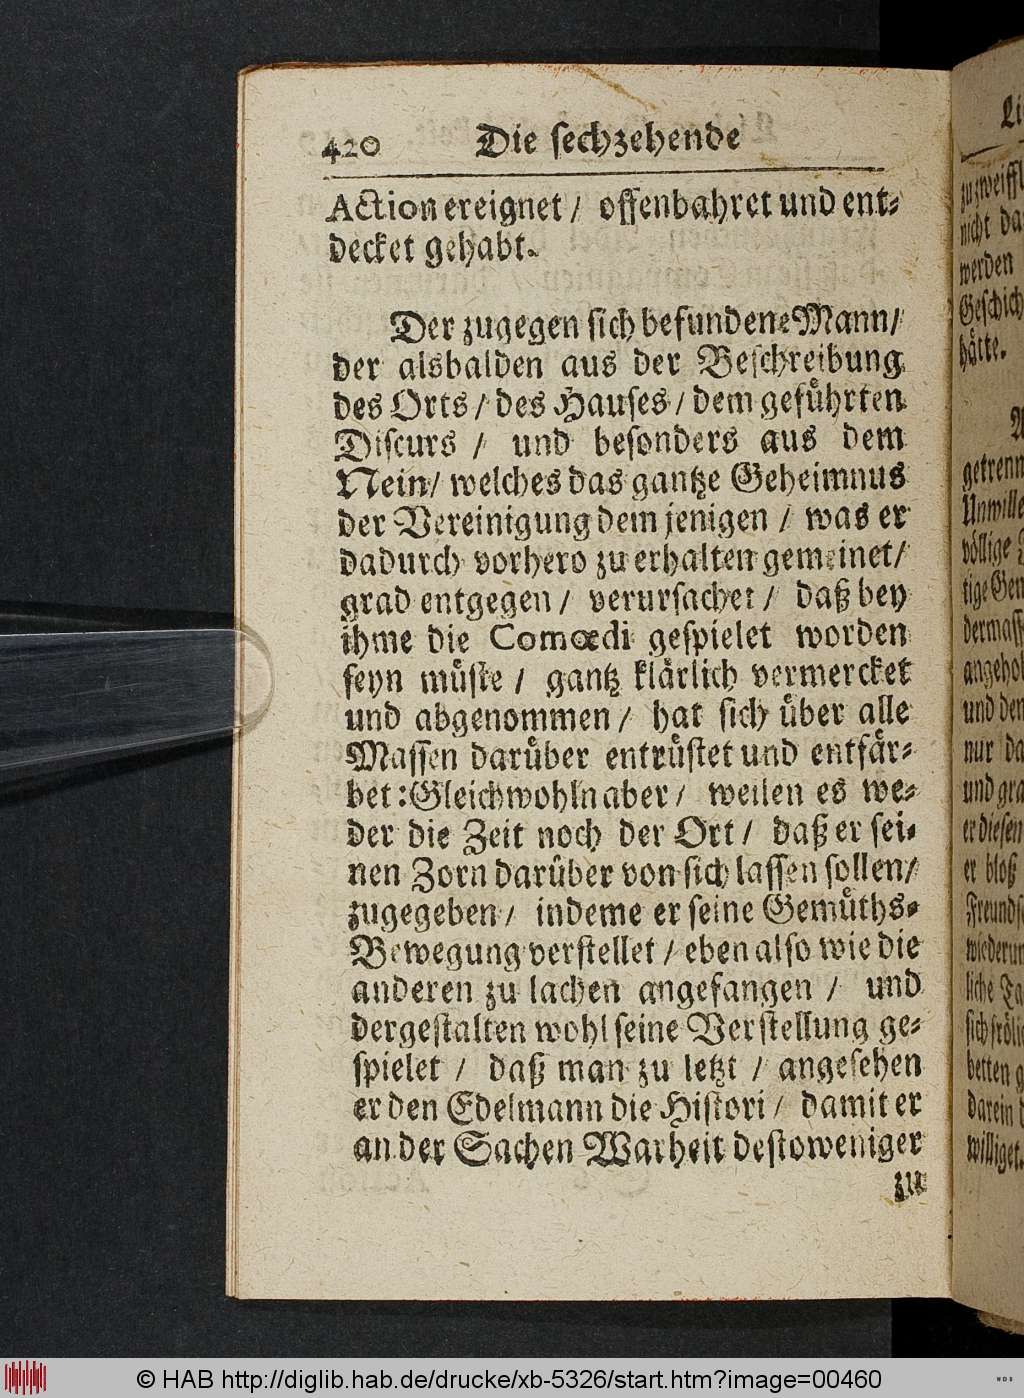 420 Die sechzehende
Action ereignet / offenbahret und ent⸗
decket gehabt.
Der zugegen sich befundene Mann /
der alsbalden aus der Beschreibung
des Orts / des Hauses / dem geführten
Discurs / und besonders aus dem
Nein / welches das gantze Geheimnus
der Vereinigung dem jenigen / was er
dadurch vorhero zu erhalten gemeinet /
grad entgegen / verursachet / daß bey
ihme die Comœdi gespielet worden
seyn müste / gantz klärlich vermercket
und abgenommen / hat sich über alle
Massen darüber entrüstet und entfär⸗
bet : Gleichwohln aber / weilen es we⸗
der die Zeit noch der Ort / daß er sei⸗
nen Zorn darüber von sich lassen sollen /
zugegeben / indeme er seine Gemüths⸗
Bewegung verstellet / eben also wie die
anderen zu lachen angefangen / und
dergestalten wohl seine Verstellung ge⸗
spielet / daß man zu letzt / angesehen
er den Edelmann die Histori / damit er
an der Sachen Warheit destoweniger
zu
Li
zu zweiffl
nicht da
werden
Geschich
hätte.
A
getrenn
Unwille
völlige
tige Gen
dermass
angehol
und den
nur da
und gra
er diesen
er bloß
Freunds
wiederum
liche Ta
sich fröli
betten g
darein d
williget.
© HAB http://diglib.hab.de/drucke/xb-5326/start.htm?image=00460